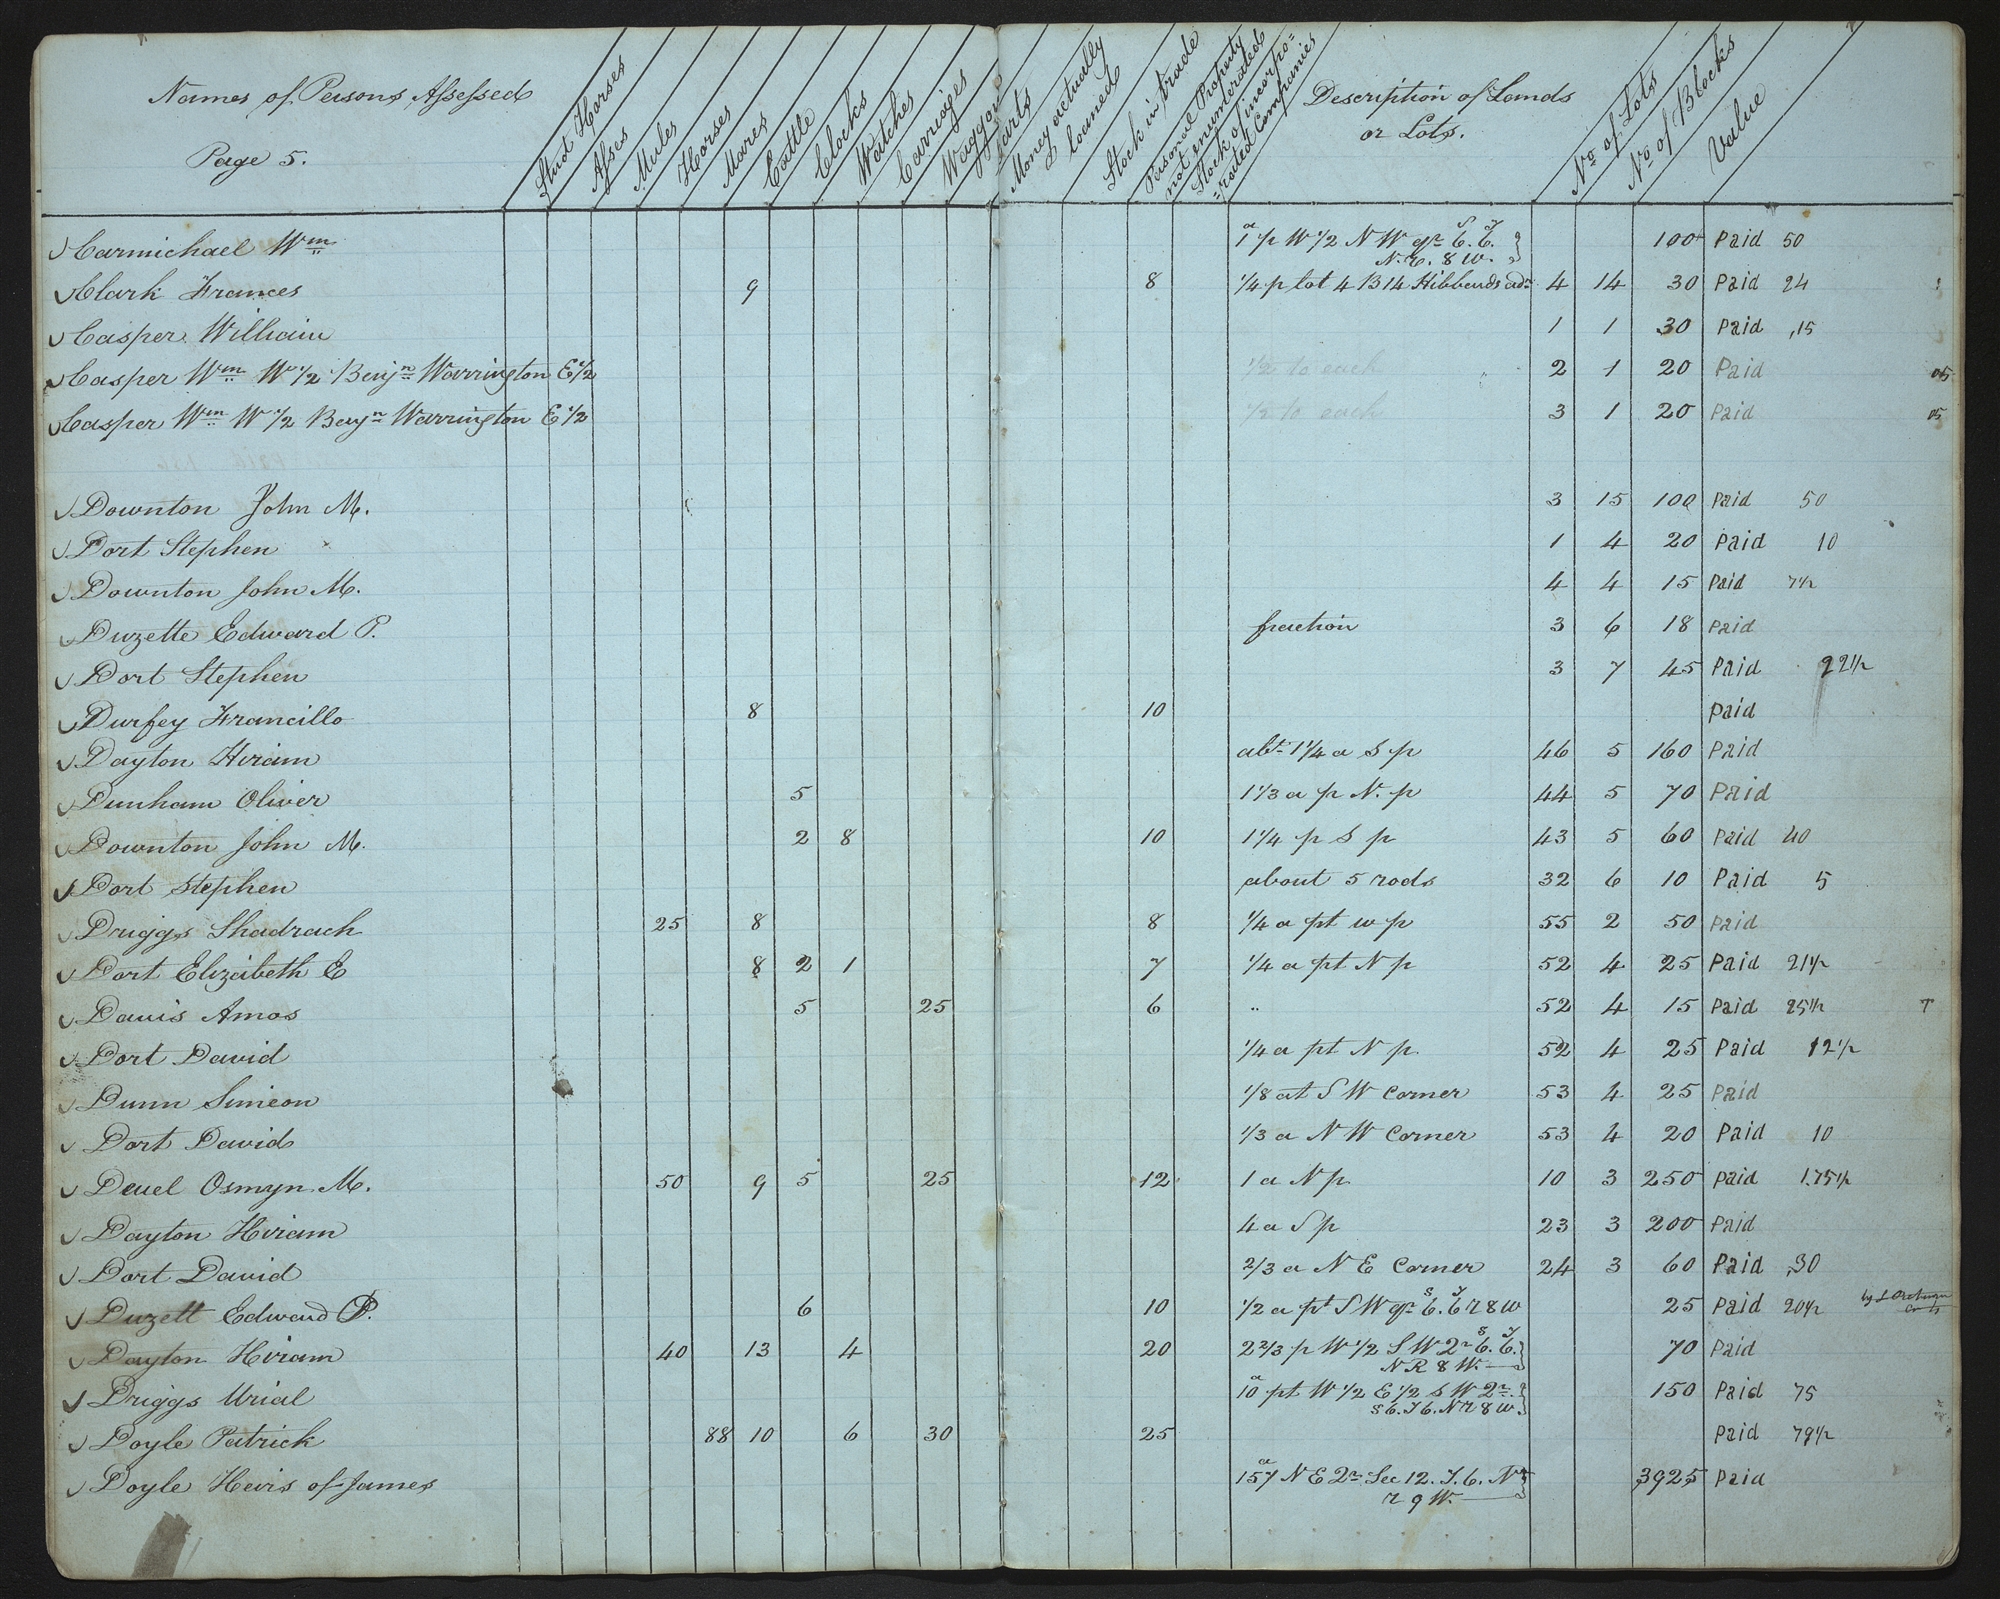 Names of Persons Assessed
Page 5.
Stud Horses
Asses
Mules
Horses
Mares
Cattle
Clocks
Watches
Carriages
Waggons
Carts
Money actually loaned
Stock in trade
Personal Property not enumerated
Stock of incorpo=rated Companies
Description of Lands or Lots.
No of Lots
No of Blocks
Value
Carmichael Wm 1 a p W 1/2 N W qr S 6. T 6. N. r. 8 W. 100 Paid 50
Clark Frances 9 8 1/4 p lot 4 B 14 Hibbends adn 4 14 30 Paid 24
Casper William 1 1 30 Paid ,15
Casper Wm W 1/2 Benjn Warrington E 1/2 1/2 to each 2 1 20 Paid 05
Casper Wm W 1/2 Benjn Warrington E 1/2 1/2 to each 3 1 20 Paid 05
Downton John M. 3 15 100 Paid 50
Dort Stephen 1 4 20 Paid 10
Downton John M. 4 4 15 Paid 7 1/2
Duzette Edward P. fraction 3 6 18 Paid
Dort Stephen 3 7 45 Paid 22 1/2
Durfey Francillo 8 10 Paid
Dayton Hiram abt 1 1/4 a S p 46 5 160 Paid
Dunham Oliver 5 1 1/3 a p N. p 44 5 70 Paid
Downton John M. 2 8 10 1 1/4 p S p 43 5 60 Paid 40
Dort Stephen about 5 rods 32 6 10 Paid 5
Driggs Shadrach 25 8 8 1/4 a pt w p 55 2 50 Paid
Dort Elizabeth E 8 2 1 7 1/4 a pt N p 52 4 25 Paid 21 1/2
Davis Amos 5 25 6 " 52 4 15 Paid 25 1/2
Dort David 1/4 a pt N p. 52 4 25 Paid 12 1/2
Dunn Simeon 1/8 at S W Corner 53 4 25 Paid
Dort David 1/3 a N W Corner 53 4 20 Paid 10
Deuel Osmyn M. 50 9 5 25 12 1 a N p. 10 3 250 Paid 1.75 1/2
Dayton Hiram 4 a S p 23 3 200 Paid
Dort David 2/3 a N E Corner 24 3 60 Paid ,30
Duzett Edward P. 6 10 1/2 a pt S W qr S 6. T 6 r 8 W 25 Paid 20 1/2
Dayton Hiram 40 13 4 20 2 2/3 p W 1/2 S W 2r S 6. T 6. N R 8 W. 70 Paid
Driggs Urial 10 a pt W 1/2 E 1/2 S W 2r. S 6. T 6. N r 8 W. 150 Paid 75
Doyle Patrick 88 10 6 30 25 Paid 79 1/2
Doyle Heirs of James 157 a N E 2r Sec 12. T. 6. N r 9 W. 3925 Paid